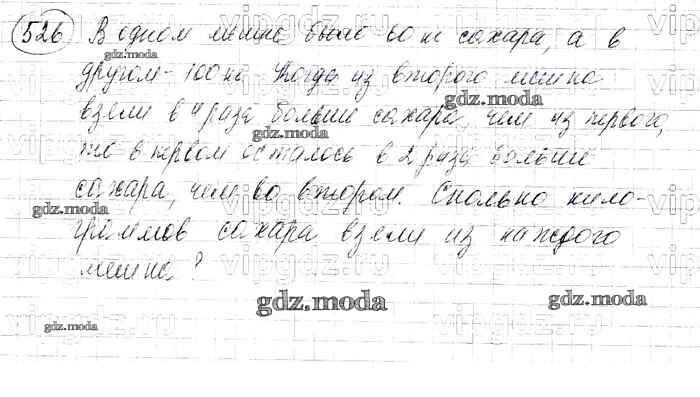 526 В одном мешке было 60 кг сахара, а в
другом - 100 кг. Когда из второго мешка
взяли в 4 раза больше сахара, чем из первого,
то в первом осталось в 2 раза больше
сахара, чем во втором. Сколько кило-
граммов сахара взяли из каждого
мешка?
gdz.moda
gdz.moda
gdz.moda
gdz.moda
gdz.moda
gdz.moda
gdz.moda
vipgdz.ru
vipgdz.ru
vipgdz.ru
vipgdz.ru
vipgdz.ru
vipgdz.ru